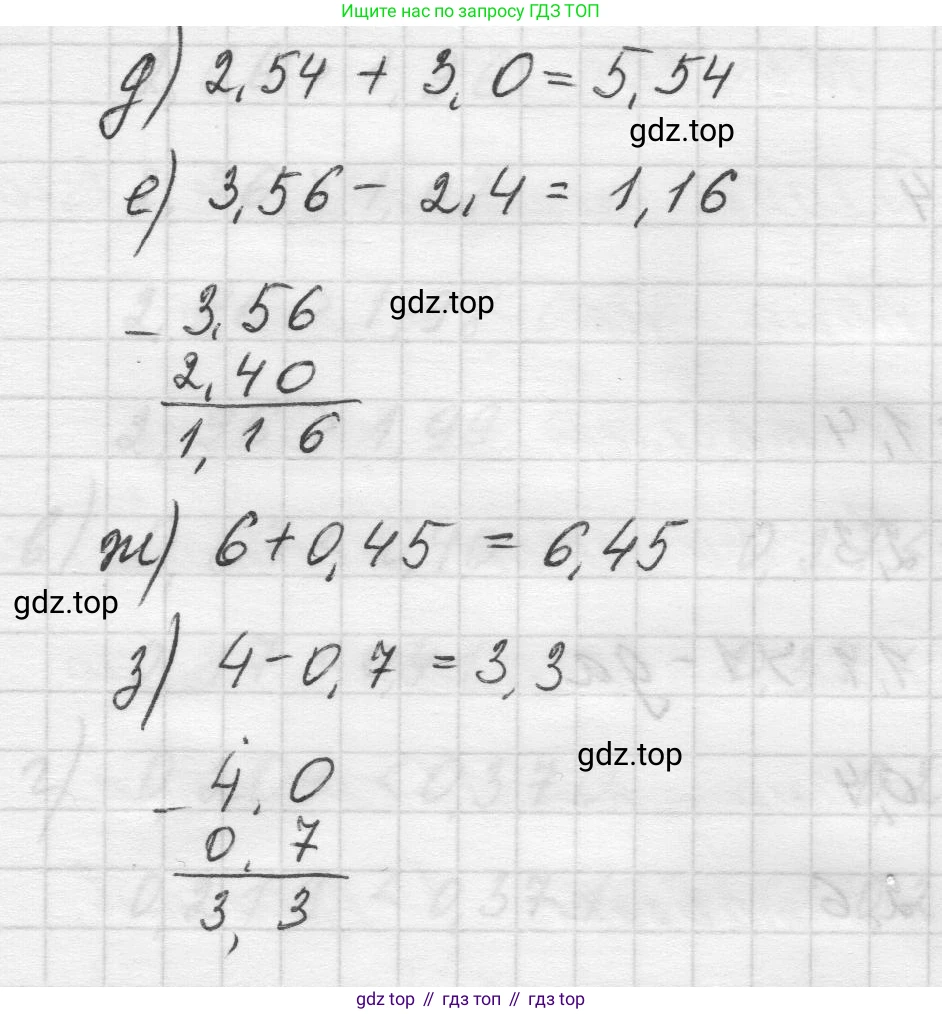 Ищите нас по запросу ГДЗ ТОП
д) 2,54 + 3,0 = 5,54
gdz.top
е) 3,56 - 2,4 = 1,16
- 3,56
gdz.top
2,40
1,16
ж) 6 + 0,45 = 6,45
gdz.top
з) 4 - 0,7 = 3,3
gdz.top
- 4,0
0,7
3,3
gdz top // гдз топ // гдз top